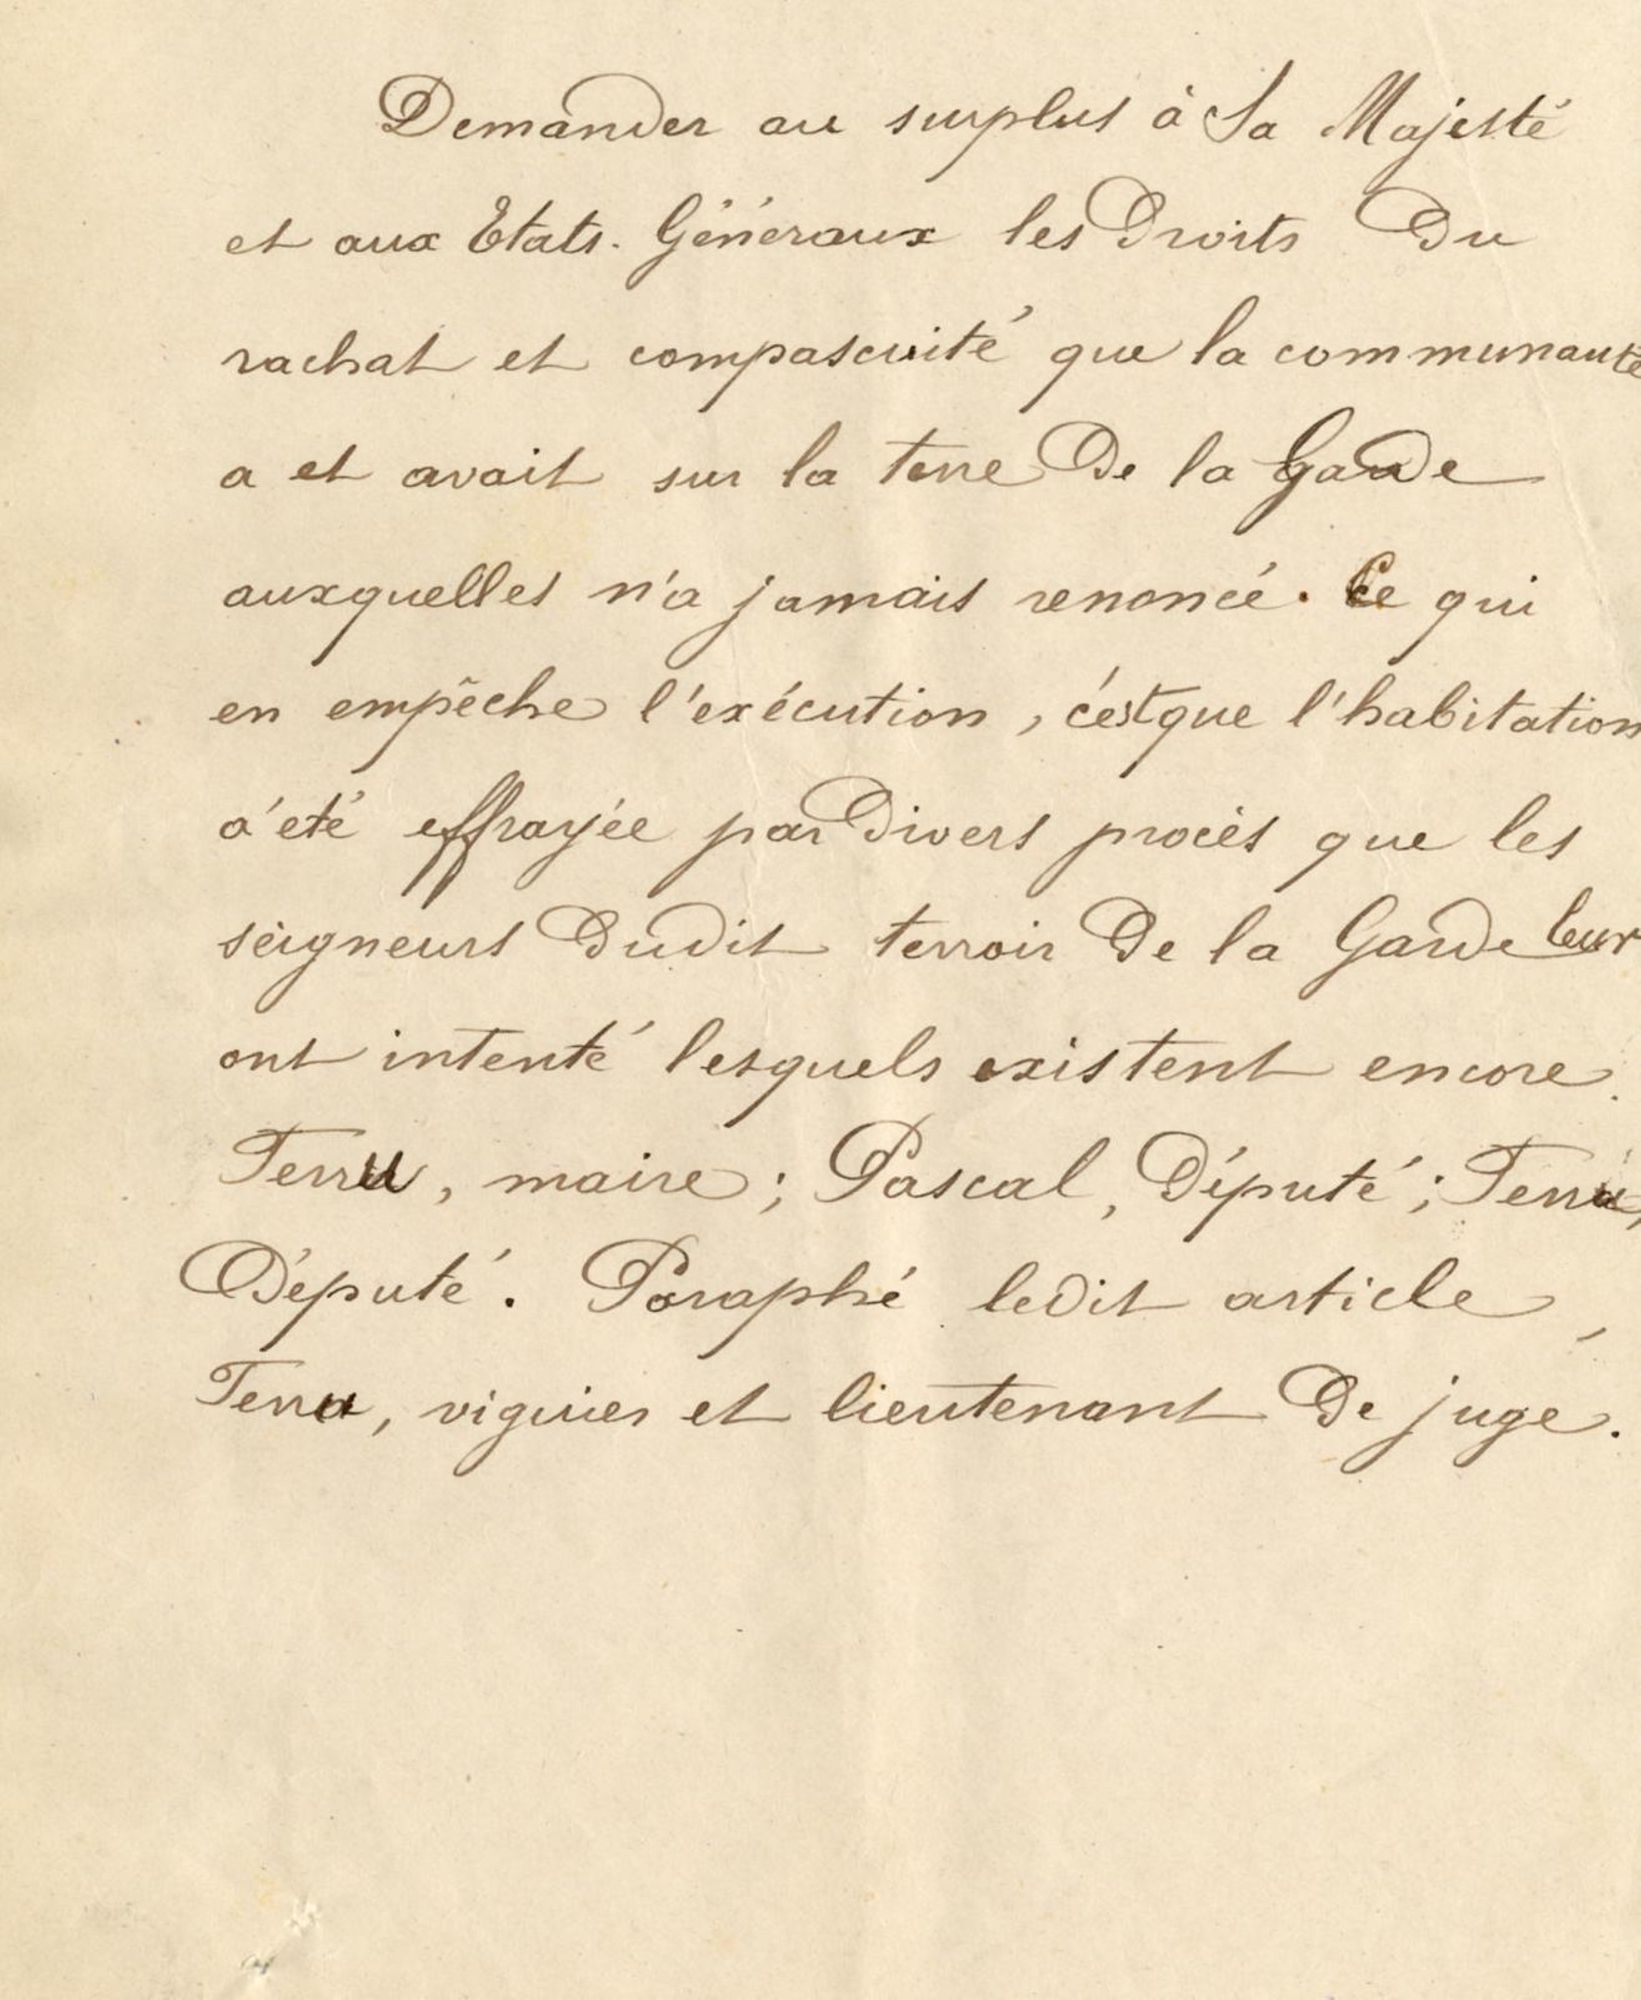 Demander au surplus à Sa Majesté
et aux Etats. Généraux les Droits Du
rachat et compascuité que la communauté
a et avait sur la terre De la Garde
auxquelles n'a jamais renoncé. Ce qui
en empêche l'exécution, c'est que l'habitation
a été effrayée par Divers procès que les
seigneurs Dudit terroir De la Garde leur
ont intenté lesquels existent encore.
Terru, maire; Pascal, Député; Terru,
Député. Paraphé ledit article,
Terru, viguier et lieutenant De juge.